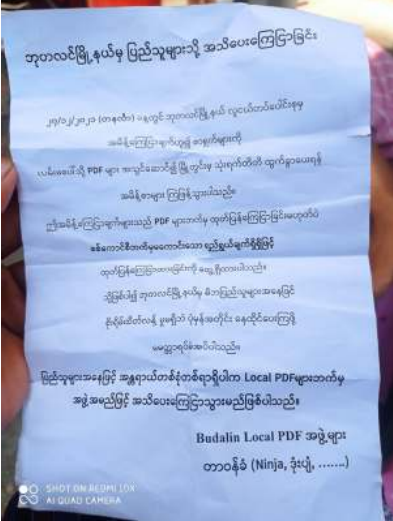 ဘုတလင်မြို့နယ်မှ ပြည်သူများသို့ အသိပေးကြေငြာခြင်း
၂၇/၁၂/၂၀၂၁ (တနင်္လာ) နေ့တွင် ဘုတလင်မြို့နယ် လူငယ်တပ်ပေါင်းစုမှ
အမိန့်ကြေငြာချက်ဟူ၍ စာရွက်များကို
လမ်းပေါ်သို့ PDF များ အသွင်ဆောင်၍ မြို့တွင်းမှ သုံးရက်တိတိ ထွက်ခွာပေးရန်
အမိန့်စာများ ကြဲဖြန့်သွားပါသည်။
ဤအမိန့်ကြေငြာချက်များသည် PDF များဘက်မှ ထုတ်ပြန်ကြေငြာခြင်းမဟုတ်ပဲ
စစ်ကောင်စီဘက်မှမကောင်းသော ရည်ရွယ်ချက်ရှိရှိဖြင့်
ထုတ်ပြန်ကြေငြာထားခြင်းကို တွေ့ရှိထားပါသည်။
သို့ဖြစ်ပါ၍ ဘုတလင်မြို့နယ်မှ မိဘပြည်သူများအနေဖြင့်
စိုးရိမ်ထိတ်လန့် မှုမရှိဘဲ ပုံမှန်အတိုင်း နေထိုင်ပေးကြဖို့
မေတ္တာရပ်ခံအပ်ပါသည်။
ပြည်သူများအနေဖြင့် အန္တရာယ်တစ်စုံတစ်ရာရှိပါက Local PDFများဘက်မှ
အဖွဲ့အမည်ဖြင့် အသိပေးကြေငြာသွားမည်ဖြစ်ပါသည်။
Budalin Local PDF အဖွဲ့များ
တာဝန်ခံ (Ninja, ဒုံးပျံ, .......)
SHOT ON REDMI 10X
AI QUAD CAMERA